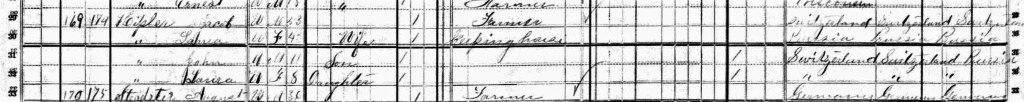 " Ernest W M 18 " Farmer Wisconsin
169 174 Heisler Jacob W M 43 1 Farmer Switzerland Switzerland Switzerland
" W F 45 Wife 1 Keeping house Russia Russia Russia
" John W M 11 Son 1 1 Switzerland Switzerland Russia
" Louisa W F 8 Daughter 1 1 " " "
170 175 August W M 36 1 Farmer Germany Germany Germany